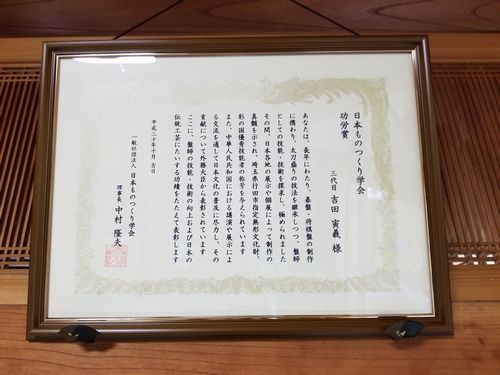 日本ものつくり学会
功労賞
三代目 吉田 寅義 様
あなたは、長年にわたり、碁盤、将棋盤の制作
に携わり、太刀盛りの技法を継承しつつ、盤師
としての技能・技術を探求し、極められました
その間、日本各地の展示や個展によって制作の
真髄を示され、埼玉県行田市指定無形文化財、
彩の国優秀技能者の称号を与えられています
また、中華人民共和国における講演や展示によ
る交流を通して日本文化の普及に尽力し、その
貢献について外務大臣から表彰されています
ここに、盤師の技能・技術の向上および日本の
伝統工芸にたいする功績をたたえて表彰します
平成三十年十月 吉日
一般社団法人 日本ものつくり学会
理事長 中村 隆夫